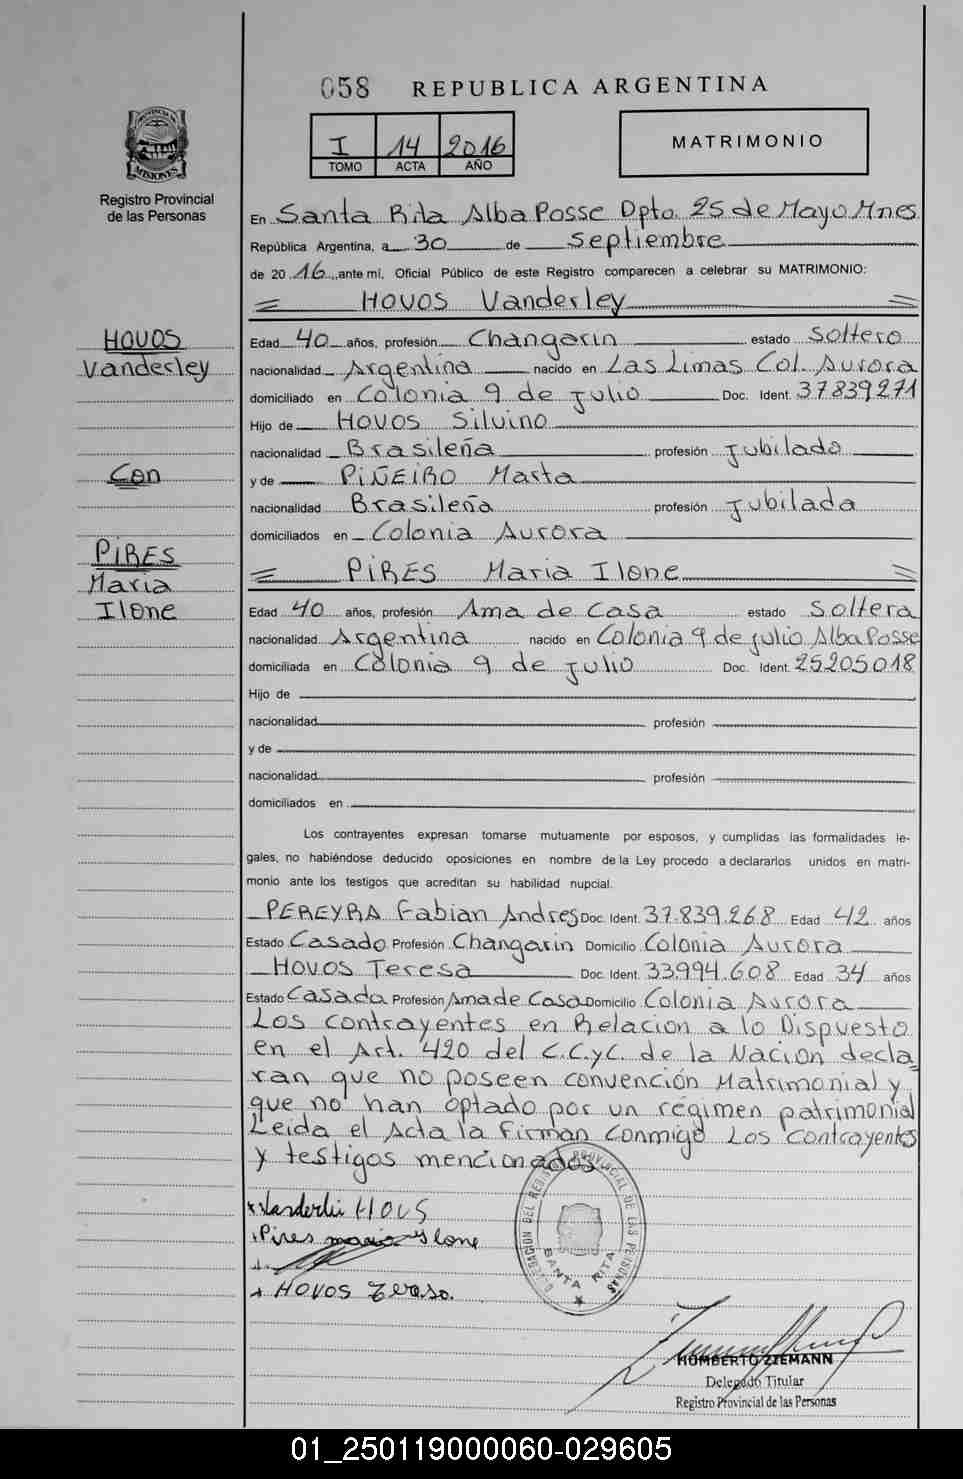 058 REPUBLICA ARGENTINA
I 14 2016
TOMO ACTA AÑO
MATRIMONIO
PROVINCIA DE
MISIONES
Registro Provincial
de las Personas
En Santa Rita Alba Posse Dpto. 25 de Mayo Mnes
República Argentina, a 30 de Septiembre
de 20 16, ante mí, Oficial Público de este Registro comparecen a celebrar su MATRIMONIO:
HOVOS Vanderley
HOVOS
Vanderley
Con
PIRES
Maria
Ilone
Edad 40 años, profesión Changarin estado Soltero
nacionalidad Argentina nacido en Las Limas Col. Aurora
domiciliado en Colonia 9 de Julio Doc. Ident. 37839271
Hijo de HOVOS Silvino
nacionalidad Brasileña profesión Jubilado
y de PIÑEIRO Marta
nacionalidad Brasileña profesión Jubilada
domiciliados en Colonia Aurora
PIRES Maria Ilone
Edad 40 años, profesión Ama de Casa estado Soltera
nacionalidad Argentina nacido en Colonia 9 de Julio Alba Posse
domiciliada en Colonia 9 de Julio Doc. Ident. 25205018
Hijo de
nacionalidad profesión
y de
nacionalidad profesión
domiciliados en
Los contrayentes expresan tomarse mutuamente por esposos, y cumplidas las formalidades le-
gales, no habiéndose deducido oposiciones en nombre de la Ley procedo a declararlos unidos en matri-
monio ante los testigos que acreditan su habilidad nupcial.
PEREYRA Fabian Andres Doc. Ident. 37.839.268 Edad 42 años
Estado Casado Profesión Changarin Domicilio Colonia Aurora
HOVOS Teresa Doc. Ident. 33994.608 Edad 34 años
Estado Casada Profesión Ama de Casa Domicilio Colonia Aurora
Los contrayentes en Relacion a lo Dispuesto
en el Art. 420 del C.C.yC. de la Nacion decla
ran que no poseen convención Matrimonial y
que no han optado por un régimen patrimonial
Leida el Acta la Firman conmigo Los contrayentes
y testigos mencionados
Vanderlei HOVS
Pires maria Ilone
HOVOS Teresa.
DELEGACION DEL REGISTRO PROVINCIAL DE LAS PERSONAS
SANTA RITA
HUMBERTO ZIEMANN
Delegado Titular
Registro Provincial de las Personas
01_250119000060-029605